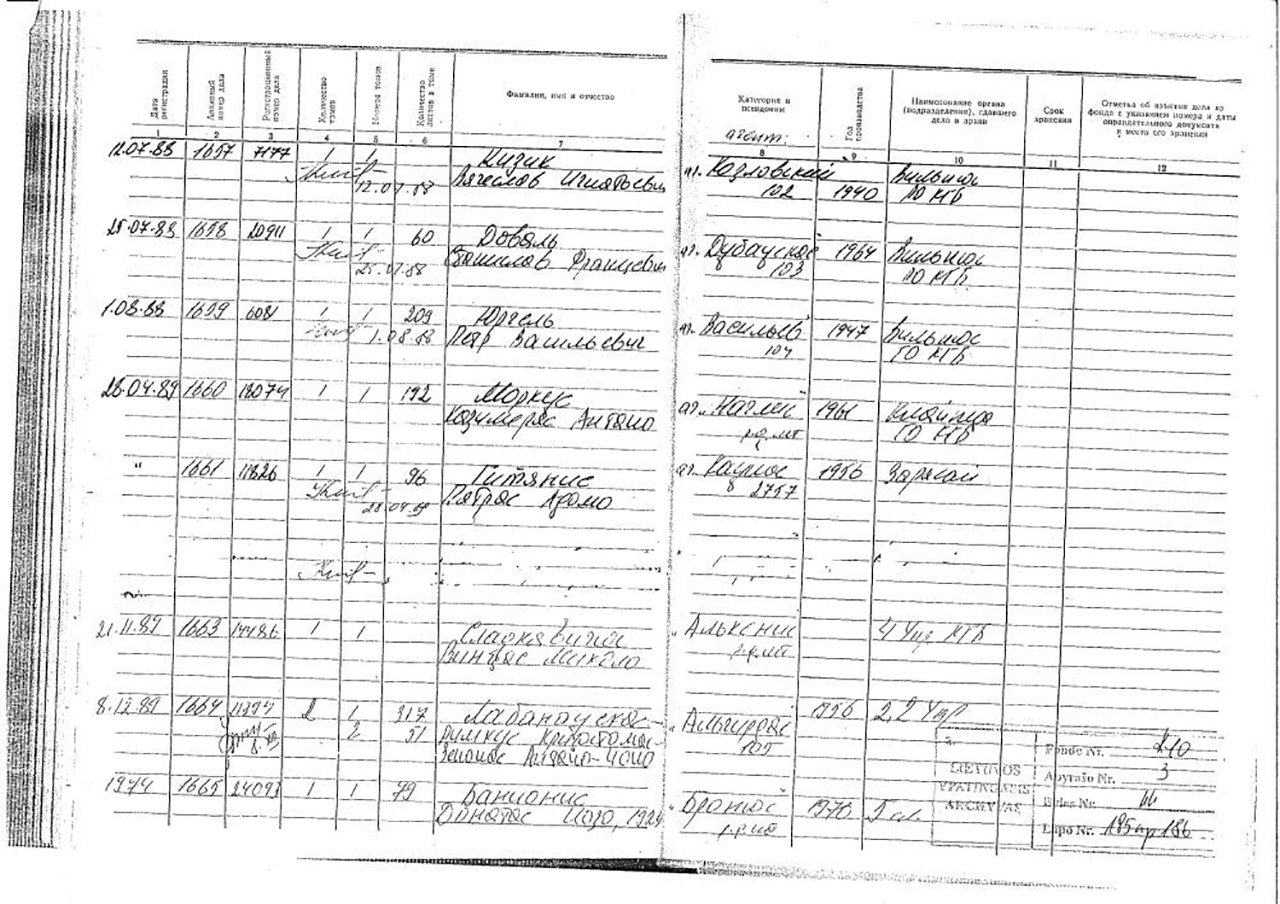 Дата регистрации
Архивный номер дела
Регистрационный номер дела
Количество томов
Номера томов
Количество листов в томе
Фамилия, имя и отчество
Категория и псевдоним
агент:
Год производства
Наименование органа (подразделения), сдавшего дело в архив
Срок хранения
Отметка об изъятии дела из фонда с указанием номера и даты оправдательного документа и места его хранения
1 2 3 4 5 6 7 8 9 10 11 12
12.07.88 1657 7177 1 1 Кизик аг. Козловский Вильнюс
12.07.88 Вячеслав Игнатьевич 102 1940 ГО КГБ
25.07.88 1658 20911 1 1 60 Доваль аг. 1964 Вильнюс
25.07.88 Станислав Францевич 103 ГО КГБ
1.08.88 1659 6081 1 1 209 Юргель аг. Васильев 1947 Вильнюс
1.08.88 Петр Васильевич 104 ГО КГБ
28.04.89 1660 18074 1 1 192 Моркус аг. 1961 Клайпеда
Казимерас Антано ГО КГБ
" 1661 11826 1 1 96 Гитянис аг. Каунас 1956 Зарасай
28.04.89 Пятрас Адомо 2757
21.11.89 1663 14486 1 1 " Альксни 4 Упр КГБ
Винцас Миколо
8.12.89 1664 2 1 317 Лабанаускас- Альгирдас 1956 2,2 Упр
2 51 Римкус 105
1974 1665 24093 1 1 79 Банионис " Бронюс 1970
Донатас Юозо, 1924
LIETUVOS
YPATINGASIS
ARCHYVAS
Fondo Nr. K-10
Apyrašo Nr. 3
Bylos Nr.
Lapo Nr. 185ap 186